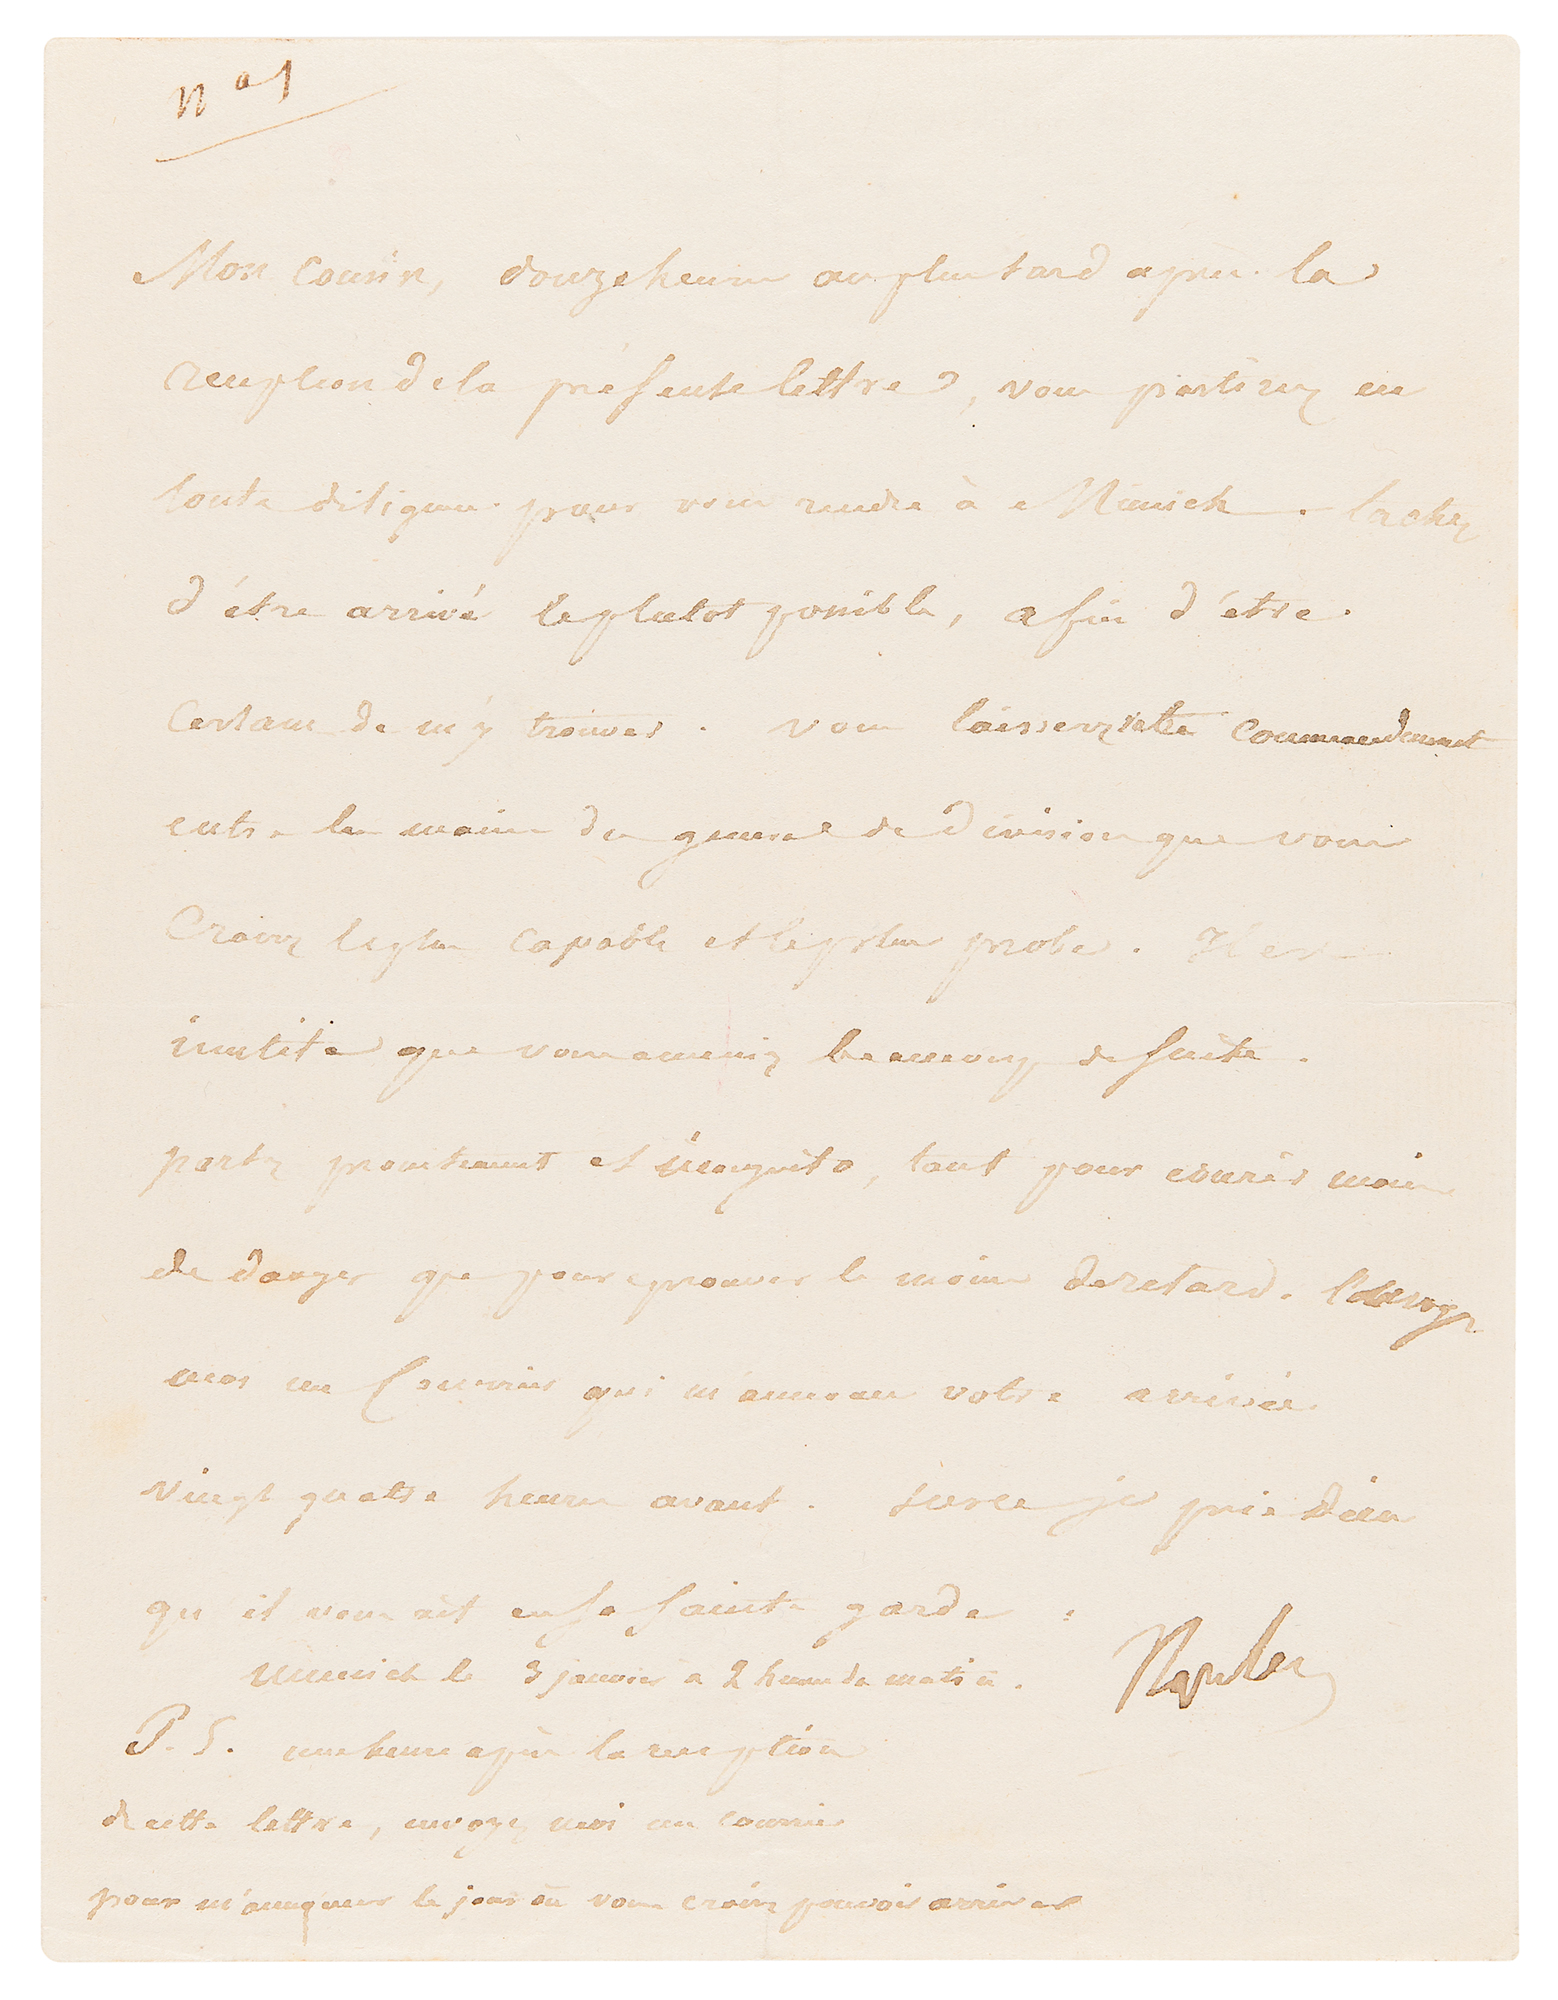 n° 1
Mon Cousin, douze heures au plus tard après la
reception de la présente lettre, vous partirez en
toute diligence pour vous rendre à Munich. tachez
d'être arrivé le plutot possible, afin d'être
certain de m'y trouver. vous laisserez votre commandement
entre les mains du general de division que vous
croirez le plus capable et le plus probe. Il est
inutile que vous ameniez beaucoup de suite.
partez promtement et incognito, tant pour courir moins
de danger que pour eprouver le moins de retard. Envoyez
moi un Courrier qui m'annonce votre arrivée
vingt quatre heures avant. sur ce je prie Dieu
qu'il vous ait en sa sainte garde :
Munich le 3 janvier à 2 heures du matin. Napoleon
P. S. une heure après la reception
de cette lettre, envoyez moi un courrier
pour m'annoncer le jour où vous croirez pouvoir arriver